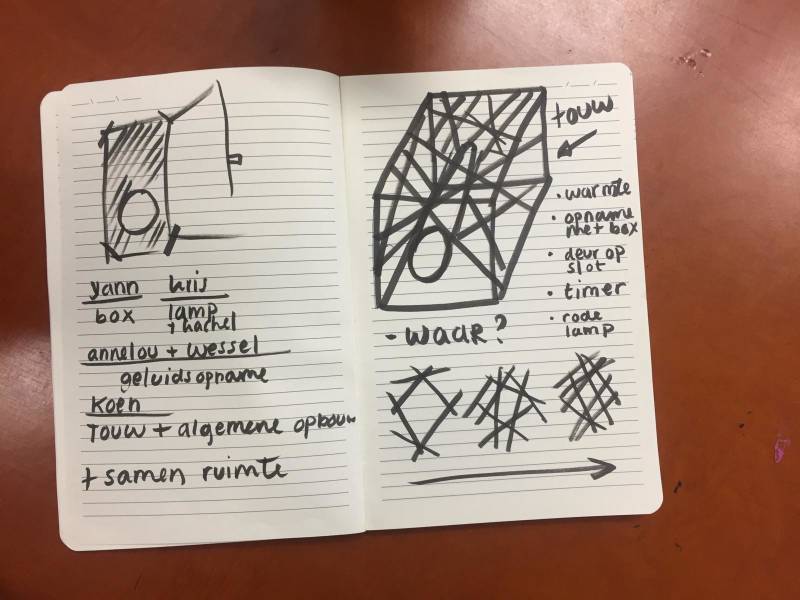 yann kris
box lamp
+ kachel
annelou + wessel
geluidsopname
Koen
Touw + algemene opbouw
+ samen ruimte
touw
• warmte
• opname
met box
• deur op
slot
• timer
• rode
lamp
- waar?